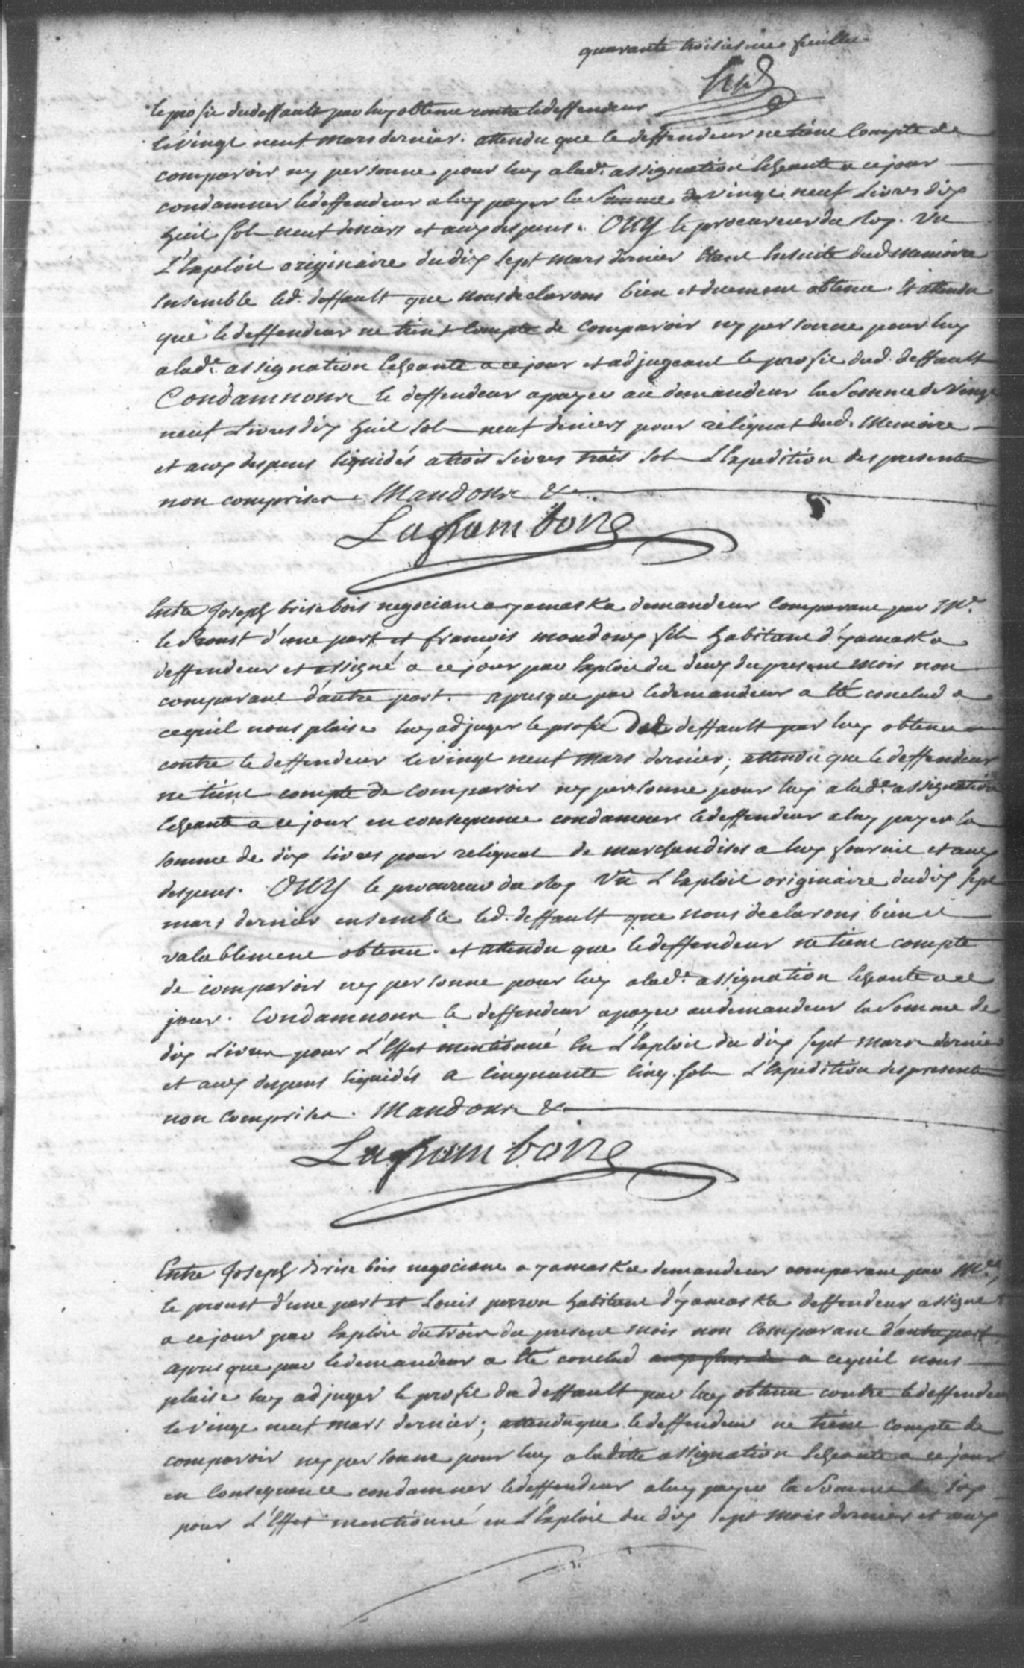 quarante troisiesme feuillet
le profit dudeffault par luy obtenu contre ledeffendeur
le vingt neuf mars dernier. attendu que le deffendeur ne tient compte de
comparoir ny personne pour luy a lade. assignation Echeante a ce jour
condamner ledeffendeur a luy payer la Somme de vingt neuf Livres dix
huit sols neuf deniers et aux despens. OUY le procureur du Roy. Vu
L'Exploit originaire du dix sept mars dernier Etant Ensuite dud. memoire
Ensemble led. deffault que nous declarons bien et duement obtenu Et attendu
que le deffendeur ne tient compte de comparoir ny personne pour luy
a lade. assignation Echeante a ce jour et adjugeant le profit dud. deffault
Condamnons le deffendeur a payer au demandeur la Somme de vingt
neuf Livres dix huit sols neuf deniers pour reliquat dud. Memoire
et aux despens liquidés a trois Livres trois sols L'Expedition des presentes
non comprises. Mandons &c
Laframboise
Entre Joseph brisebois negociant a yamaska demandeur comparant par Me.
le Proust d'une part et françois mondoux fils habitant d'yamaska
deffendeur et assigné a ce jour par Exploit du deux du present mois non
comparant d'autre part. apres que par le demandeur a Eté conclud a
ce qu'il nous plaise luy adjuger le profit dud. deffault par luy obtenu
contre le deffendeur le vingt neuf mars dernier; attendu que le deffendeur
ne tient compte de comparoir ny personne pour luy a lade. assignation
Echeante a ce jour en consequence condamner le deffendeur a luy payer la
somme de dix livres pour reliquat de marchandises a luy fournie et aux
despens. OUY le procureur du Roy Vu L'Exploit originaire du dix sept
mars dernier ensemble led. deffault que nous declarons bien et
valablement obtenu. et attendu que le deffendeur ne tient compte
de comparoir ny personne pour luy a lade. assignation Echeante a ce
jour. Condamnons le deffendeur a payer au demandeur la Somme de
dix Livres pour L'Effet mentionné En L'Exploit du dix sept mars dernier
et aux despens liquidés a Cinquante Cinq sols L'Expedition des presentes
non comprises. Mandons &c
Laframboise
Entre Joseph Brisebois negociant a yamaska demandeur comparant par Me.
le proust d'une part et Louis perron habitant d'yamaska deffendeur assigné
a ce jour par Exploit du trois du present mois non comparant d'autre part
apres que par le demandeur a Eté conclud a ce qu'il nous
plaise luy adjuger le profit du deffault par luy obtenu contre le deffendeur
le vingt neuf mars dernier; attendu que le deffendeur ne tient compte de
comparoir ny personne pour luy a ladite assignation Echeante a ce jour
en Consequence condamner le deffendeur a luy payer la Somme de
pour L'Effet mentionné en L'Exploit du dix sept mars dernier et aux